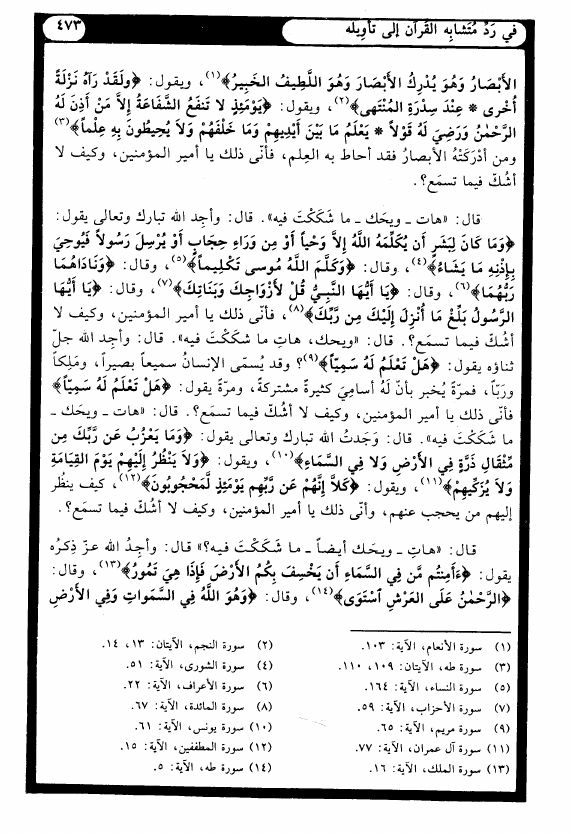 في رَدِّ مُتَشابِه القُرآن إلى تأويله
٤٧٣
الأَبْصَارُ وَهُوَ يُدْرِكُ الأَبْصَارَ وَهُوَ اللَّطِيفُ الخَبِيرُ﴾(١)، ويقول: ﴿ولَقَدْ رَآهُ نَزْلَةً
أُخرى * عِنْدَ سِدْرَةِ المُنْتَهى﴾(٢)، ويقول: ﴿يَوْمَئِذٍ لا تَنفَعُ الشَّفَاعَةُ إلاَّ مَنْ أَذِنَ لَهُ
الرَّحْمٰنُ وَرَضِيَ لَهُ قَوْلاً * يَعْلَمُ مَا بَيْنَ أَيْدِيهِمْ وَمَا خَلْفَهُمْ وَلاَ يُحِيطُونَ بِهِ عِلْماً﴾(٣)
ومن أدْرَكَتْهُ الأبصارُ فقد أحاط به العِلم، فأنّى ذلك يا أمير المؤمنين، وكيف لا
أشُكّ فيما تسمَع؟.
قال: «هات ـ ويحَك ـ ما شَكَكْتَ فيه». قال: وأجِد الله تبارك وتعالى يقول:
﴿وَمَا كَانَ لِبَشَرٍ أَن يُكَلِّمَهُ اللَّهُ إلاَّ وَحْياً أَوْ مِن وَرَاءِ حِجَابٍ أَوْ يُرْسِلَ رَسُولاً فَيُوحِيَ
بِإِذْنِهِ مَا يَشَاءُ﴾(٤)، وقال: ﴿وَكَلَّمَ اللَّهُ مُوسى تَكْلِيماً﴾(٥)، وقال: ﴿وَنَادَاهُمَا
رَبُّهُمَا﴾(٦)، وقال: ﴿يَا أَيُّهَا النَّبِيُّ قُلْ لأَزْوَاجِكَ وَبَنَاتِكَ﴾(٧)، وقال: ﴿يَا أَيُّهَا
الرَّسُولُ بَلِّغْ مَا أُنْزِلَ إلَيْكَ مِن رَبِّكَ﴾(٨)، فأنّى ذلك يا أمير المؤمنين، وكيف لا
أشُكّ فيما تسمَع؟. قال: «ويحك، هاتِ ما شكَكْتَ فيه». قال: وأجد الله جلّ
ثناؤه يقول: ﴿هَلْ تَعْلَمُ لَهُ سَمِيّاً﴾(٩)؟ وقد يُسمّى الإنسانُ سميعاً بصيراً، ومَلِكاً
وربّاً، فمرّةً يُخبر بأنّ لَهُ أسامِيَ كثيرةً مشتركةً، ومرّة يقول: ﴿هَلْ تَعْلَمُ لَهُ سَمِيّاً﴾
فأنّى ذلك يا أمير المؤمنين، وكيف لا أشُكّ فيما تسمَع؟. قال: «هات ـ ويحَك ـ
ما شكَكْتَ فيه». قال: وَجَدتُ الله تبارك وتعالى يقول: ﴿وَمَا يَعْزُبُ عَن رَّبِّكَ مِن
مِّثْقَالِ ذَرَّةٍ فِي الأَرْضِ وَلا فِي السَّمَاءِ﴾(١٠)، ويقول: ﴿وَلاَ يَنْظُرُ إِلَيْهِمْ يَوْمَ القِيَامَةِ
وَلاَ يُزَكِّيهِمْ﴾(١١)، ويقول: ﴿كَلاَّ إِنَّهُمْ عَن رَّبِّهِم يَوْمَئِذٍ لَّمَحْجُوبُونَ﴾(١٢)، كيف ينظُر
إليهم من يحجب عنهم، وأنّى ذلك يا أمير المؤمنين، وكيف لا أشُكّ فيما تسمَع؟.
قال: «هاتِ ـ ويحَك أيضاً ـ ما شَكَكْتَ فيه؟» قال: وأجِدُ الله عزّ ذِكرُه
يقول: ﴿ءَأَمِنتُم مَّن فِي السَّمَاءِ أَن يَخْسِفَ بِكُمُ الأَرْضَ فَإِذَا هِيَ تَمُورُ﴾(١٣)، وقال:
﴿الرَّحْمٰنُ عَلَى العَرْشِ ٱسْتَوَى﴾(١٤)، وقال: ﴿وَهُوَ اللَّهُ فِي السَّمَواتِ وَفِي الأَرْضِ
(١) سورة الأنعام، الآية: ١٠٣.
(٢) سورة النجم، الآيتان: ١٣، ١٤.
(٣) سورة طه، الآيتان: ١٠٩، ١١٠.
(٤) سورة الشورى، الآية: ٥١.
(٥) سورة النساء، الآية: ١٦٤.
(٦) سورة الأعراف، الآية: ٢٢.
(٧) سورة الأحزاب، الآية: ٥٩.
(٨) سورة المائدة، الآية: ٦٧.
(٩) سورة مريم، الآية: ٦٥.
(١٠) سورة يونس، الآية: ٦١.
(١١) سورة آل عمران، الآية: ٧٧.
(١٢) سورة المطففين، الآية: ١٥.
(١٣) سورة الملك، الآية: ١٦.
(١٤) سورة طه، الآية: ٥.